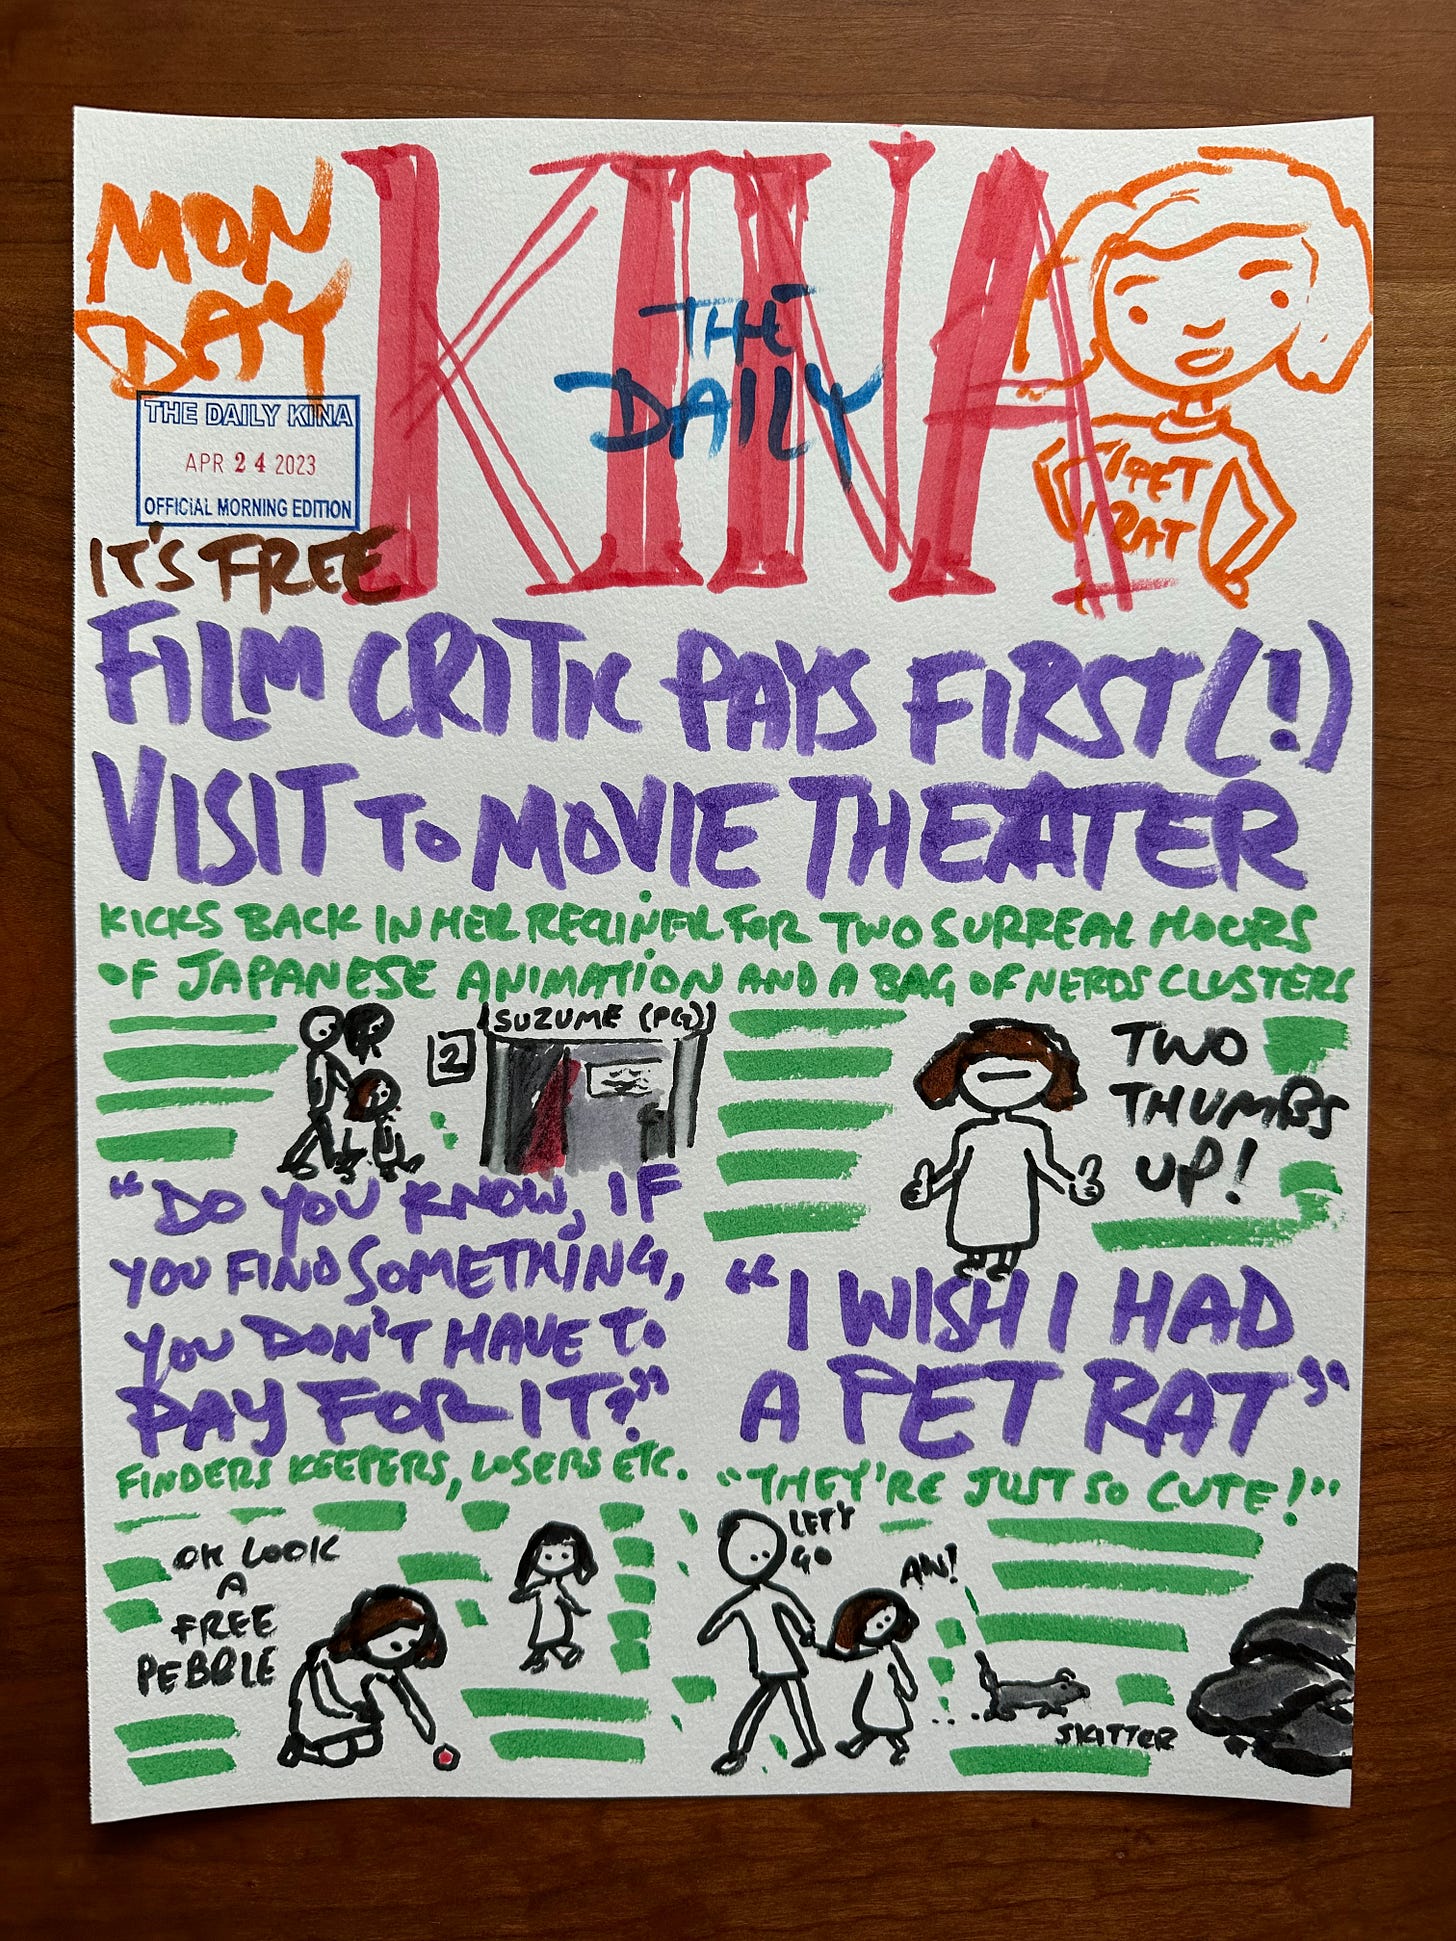 MON
DAY
KINA
THE
DAILY
THE DAILY KINA
APR 24 2023
OFFICIAL MORNING EDITION
IT'S FREE
I PET
RAT
FILM CRITIC PAYS FIRST(!)
VISIT TO MOVIE THEATER
KICKS BACK IN HER RECLINER FOR TWO SURREAL HOURS
OF JAPANESE ANIMATION AND A BAG OF NERDS CLUSTERS
2
SUZUME (PG)
TWO
THUMBS
UP!
"DO YOU KNOW, IF
YOU FIND SOMETHING,
YOU DON'T HAVE TO
PAY FOR IT?"
FINDERS KEEPERS, LOSERS ETC.
OH LOOK
A
FREE
PEBBLE
"I WISH I HAD
A PET RAT"
"THEY'RE JUST SO CUTE!"
LET'S
GO
AW!
SKITTER